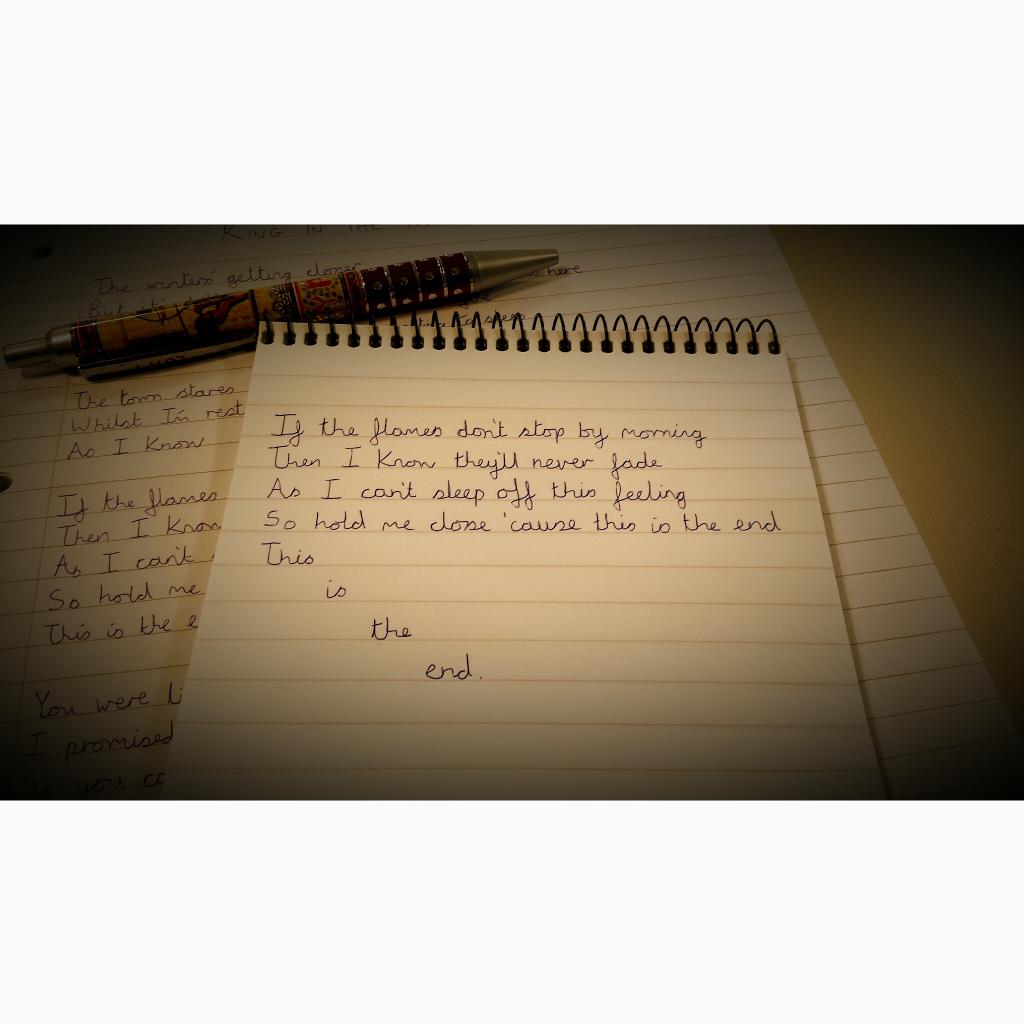 KING IN THE
The winters' getting closer
here
But it's
to sleep
The town stares
Whilst I'm rest
As I Know
If the flames
Then I Know
As I can't
So hold me
This is the e
You were li
I promised
So you ca
If the flames don't stop by morning
Then I Know they'll never fade
As I can't sleep off this feeling
So hold me close 'cause this is the end
This
is
the
end.